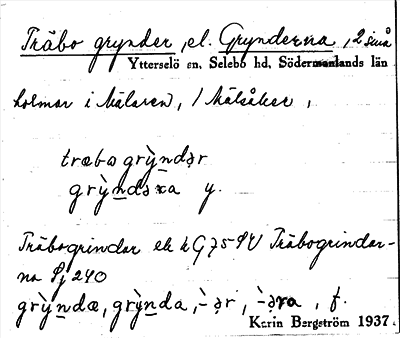 Träbo grynder, el. Grynderna, 2 små
Ytterselö sn, Selebo hd, Södermanlands län
holmar i Mälaren, / Mälsåker,
træbogrỳndər
grỳndəra y.
Träbogrindar ek kG 75 SV Träbogrindar-
na Sj 240
grỳndæ, grỳnda, -̀ər, -̀əra, f.
Karin Bergström 1937.